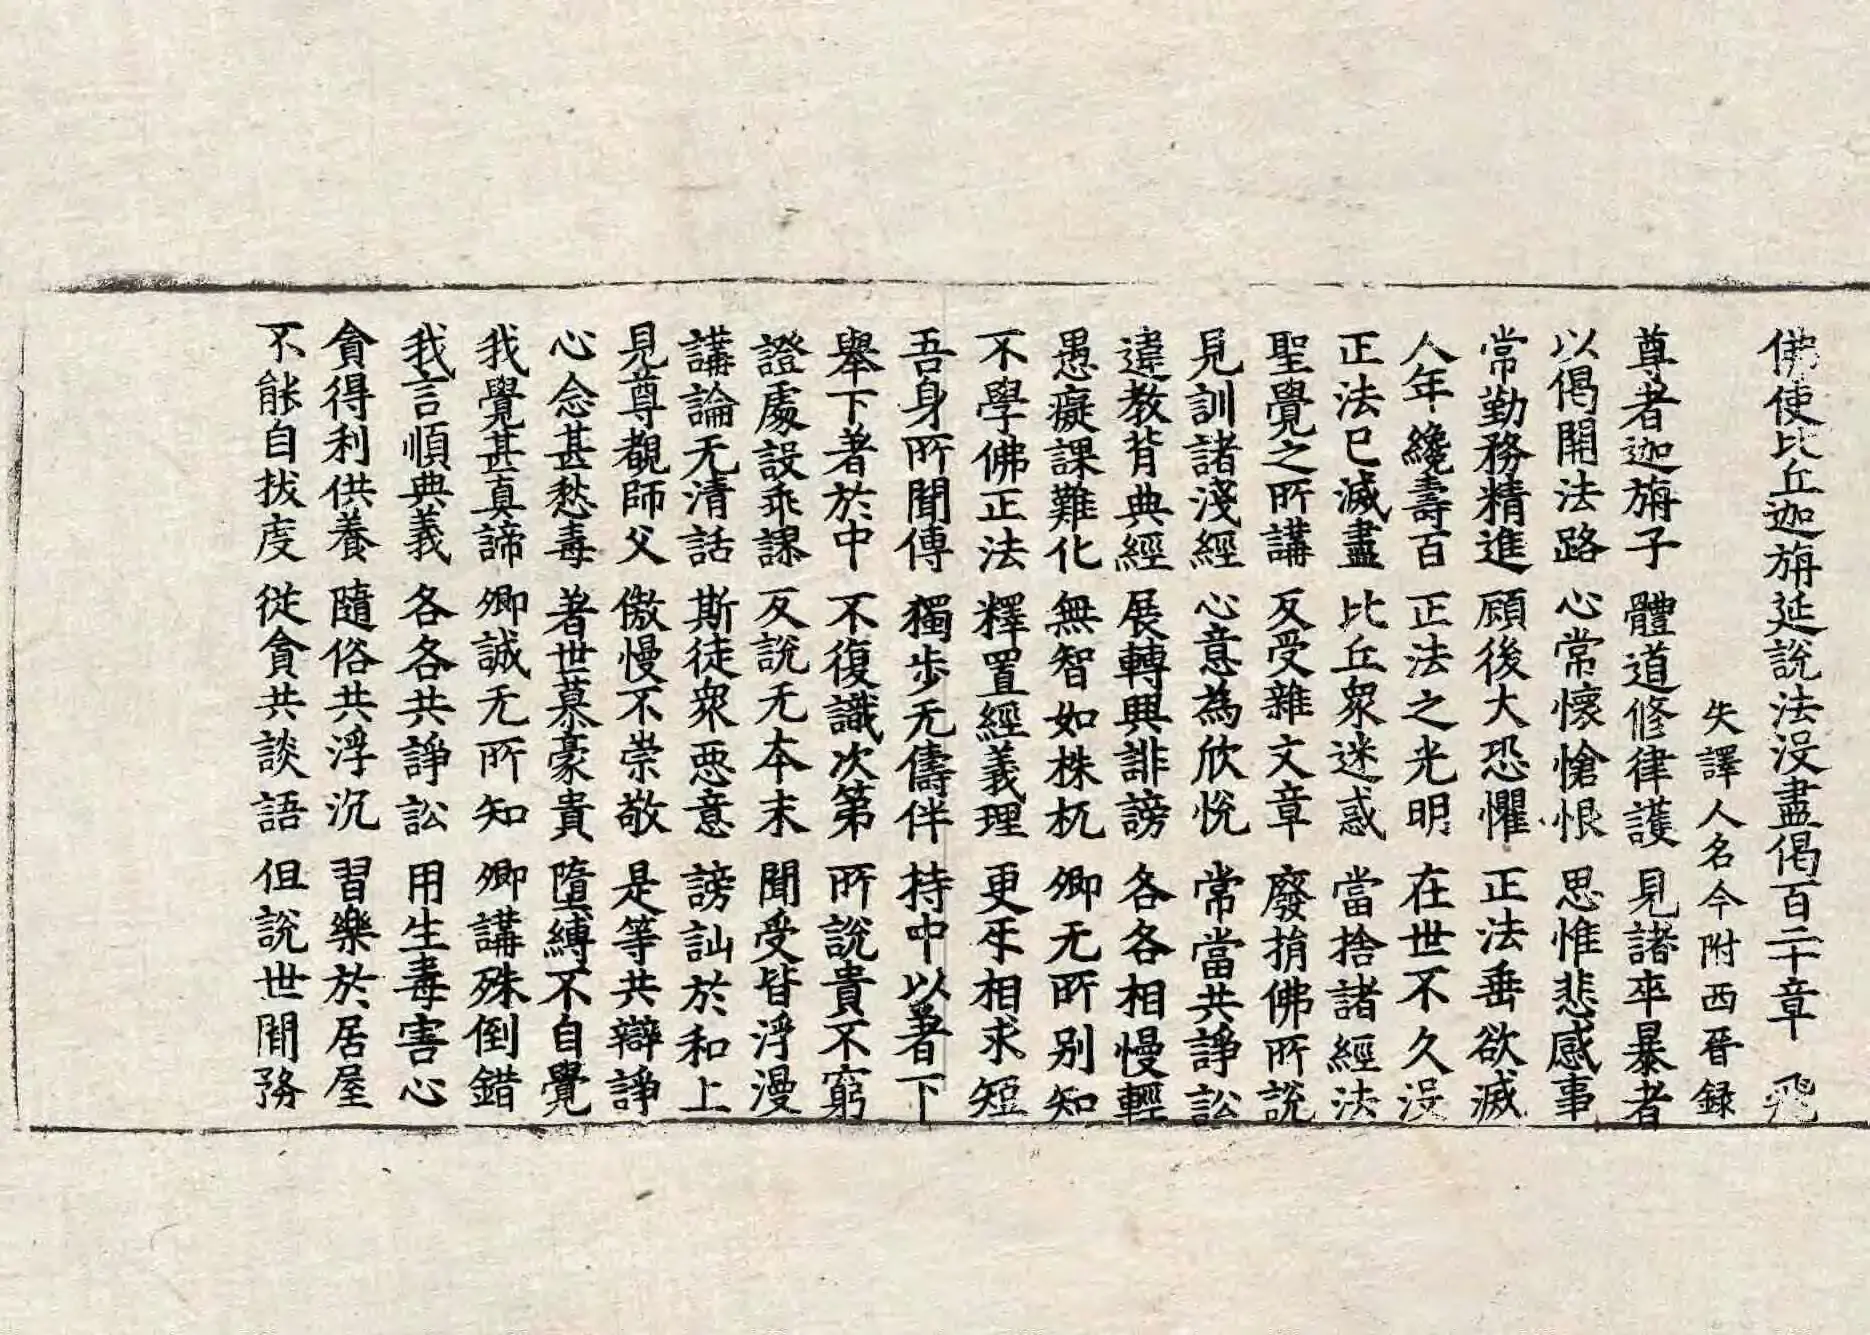 佛使比丘迦旃延說法没盡偈百二十章　飛
失譯人名今附西晉録
尊者迦旃子　體道修律護　見諸卒暴者
以偈開法路　心常懷愴恨　思惟悲感事
常勤務精進　顧後大恐懼　正法垂欲滅
人年纔壽百　正法之光明　在世不久没
正法已滅盡　比丘衆迷惑　當捨諸經法
聖覺之所講　反受雜文章　廢捐佛所說
見訓諸淺經　心意為欣悅　常當共諍訟
違教背典經　展轉興誹謗　各各相慢輕
愚癡課難化　無智如株杌　卿无所别知
不學佛正法　釋置經義理　更乐相求短
吾身所聞傳　獨步无儔伴　持中以著下
舉下著於中　不復識次第　所說貴不窮
證處設乖謬　反說无本末　聞受皆浮漫
講論无清話　斯徒衆惡意　謗訕於和上
見尊覩師父　傲慢不崇敬　是等共辯諍
心念甚愁毒　著世慕豪貴　墮縛不自覺
我覺甚真諦　卿誠无所知　卿講殊倒錯
我言順典義　各各共諍訟　用生毒害心
貪得利供養　隨俗共浮沉　習樂於居屋
不能自拔度　從貪共談語　但說世間務